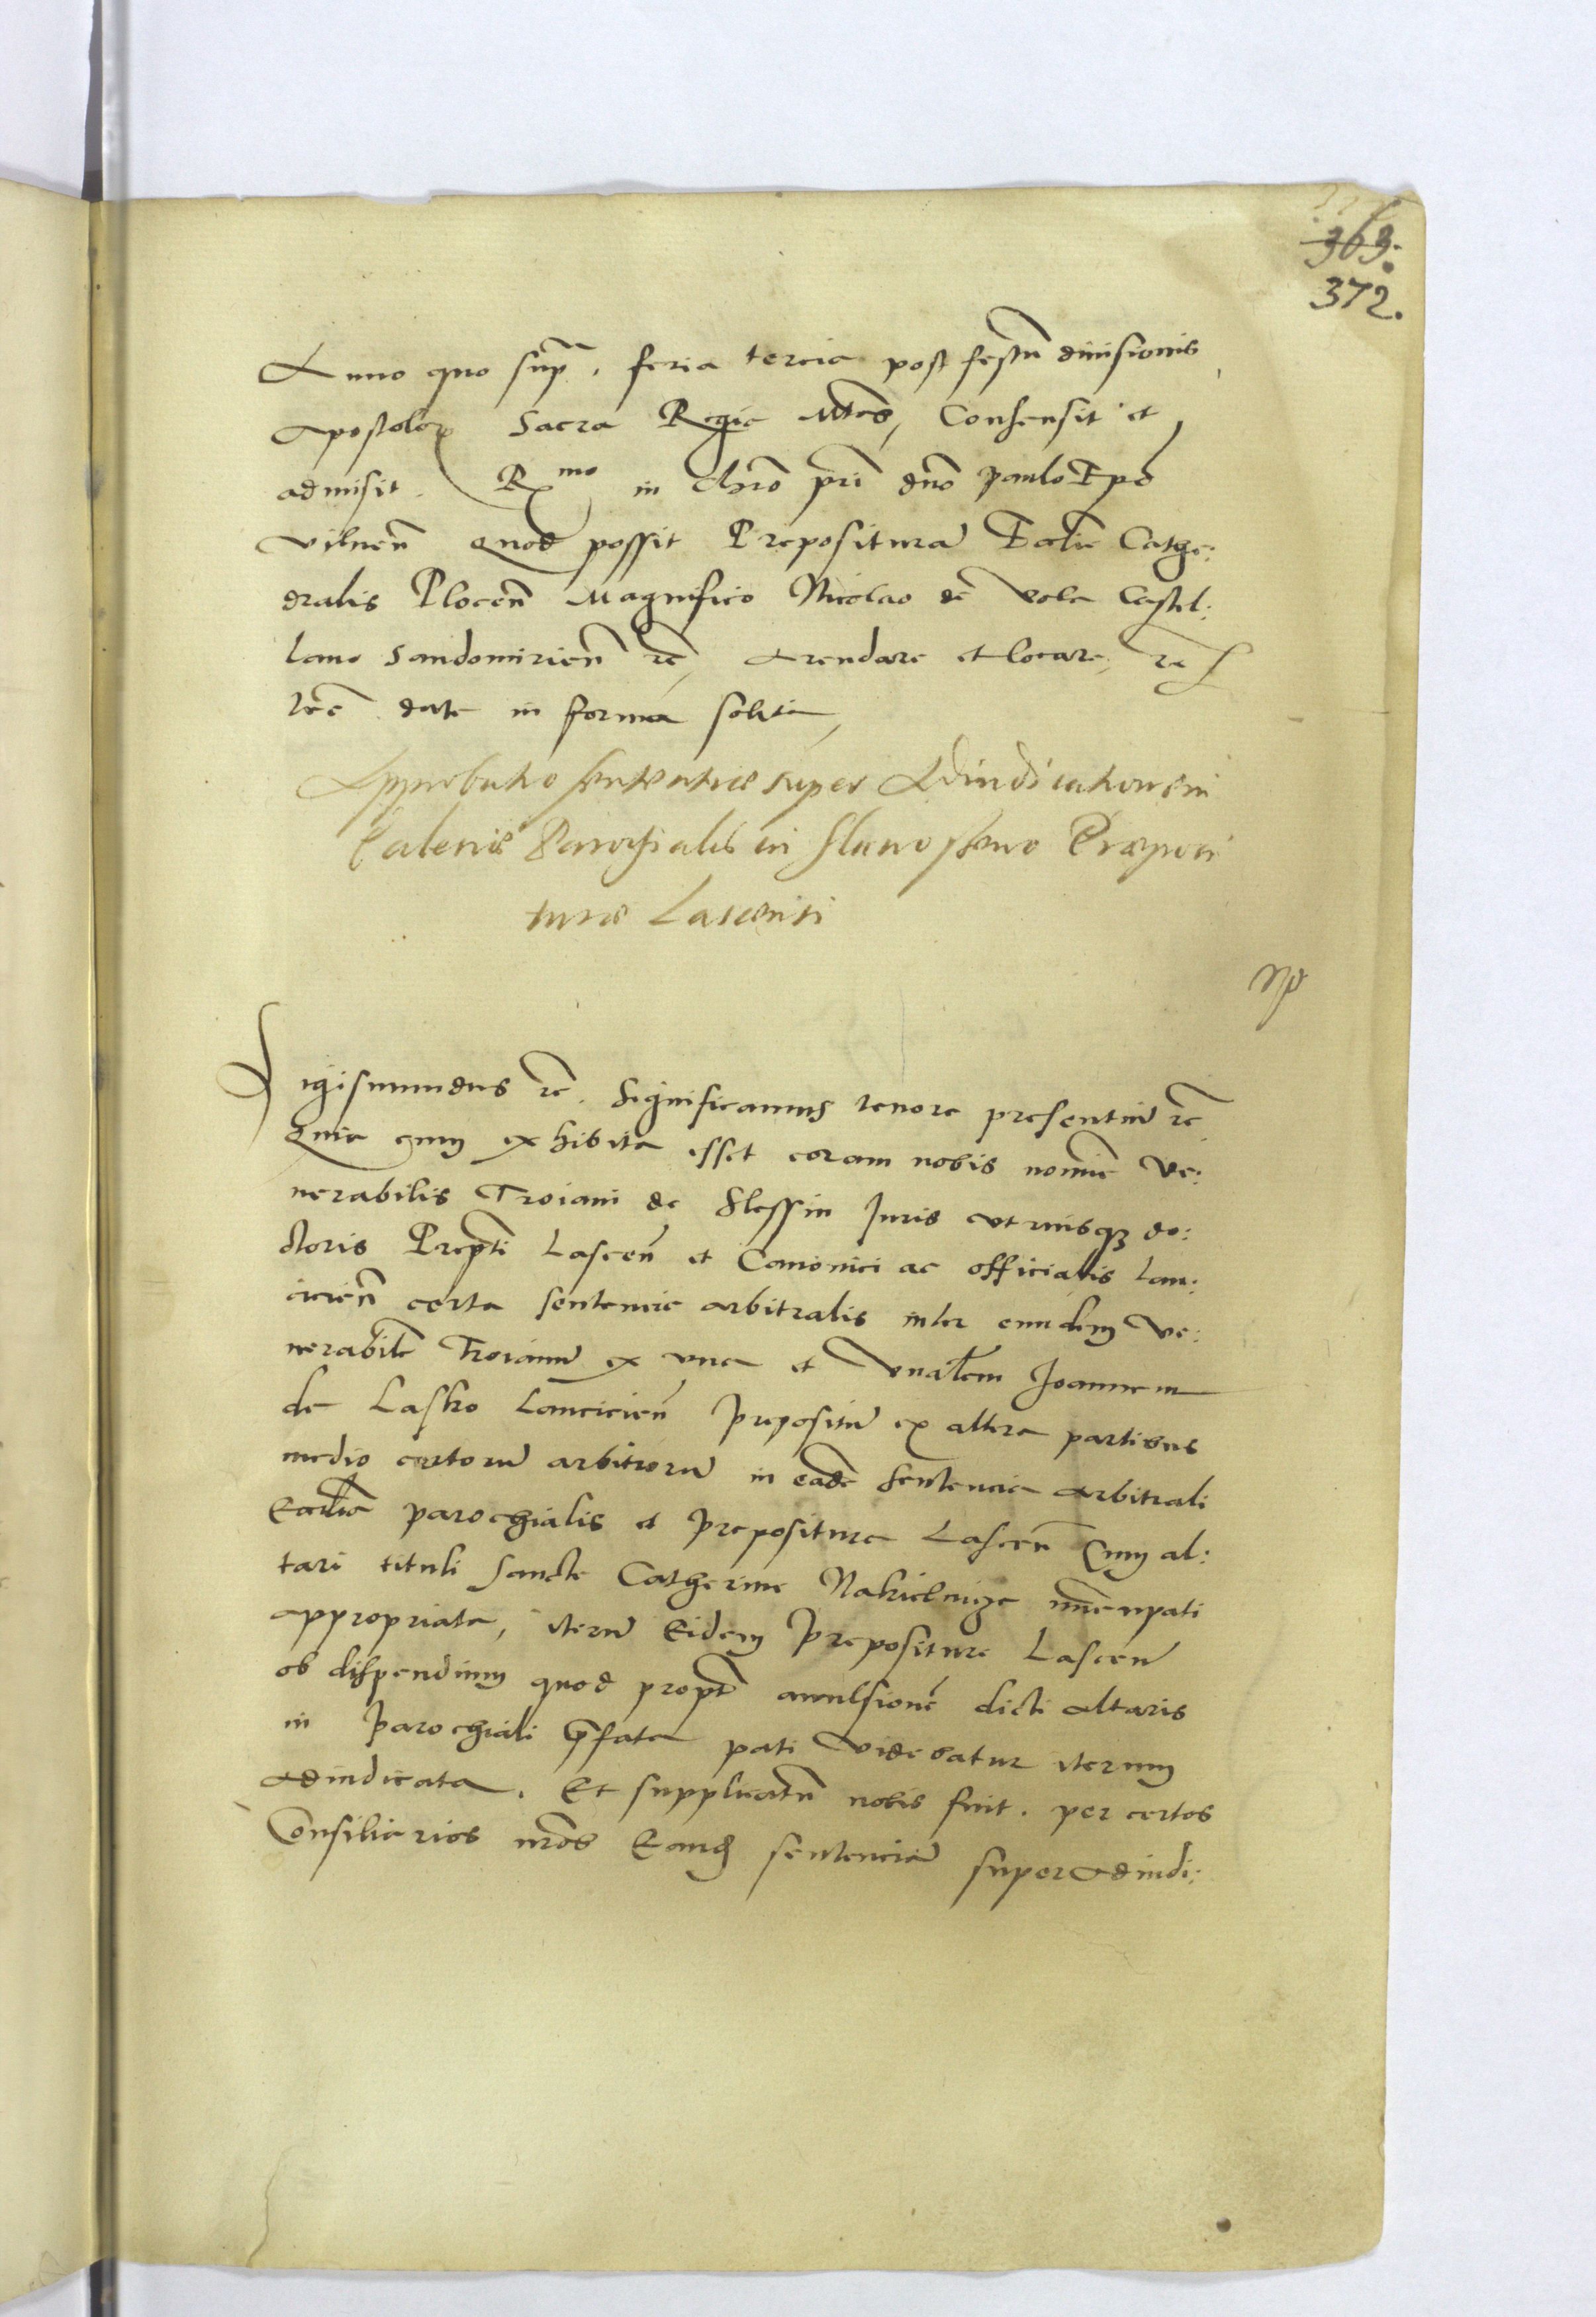 369.
372.
Anno quo sup̃ . feria tercia post festũ diuisionis
apostolorꝝ Sacra Regia Mtas, Consensit et
admisit . Rmo in Chrõ pr̃i dño Paulo Epõ
vilneñ Quod possit Preposituraꝫ Ecclie Cathe:
dralis Ploceñ Magnifico Nicolao de Vola Castel:
lano Sandomirieñ rc̃, Arendare et locare, rc̃
lr̃e date in forma solita,
Approbatio sententiæ super Adiudicationem
Parochialis in Præposi
turæ Lascensi
Sigismundus rc̃ . Significamus tenore presentiũ rc̃
Quia cum exhibita esset coram nobis nomine Ve:
nerabilis Troiani de Slessin Iuris vtriusqꝫ do:
ctoris Prepti Lasceñ et Canonici ac officialis Lan:
cicieñ certa sentencia arbitralis inter eundem Ve:
nerabilẽ Troianũ ex vna et Vnalem Joannem
de Lasko Lancicieñ Prepositũ ex altera partibus
medio certorũ arbitrorũ in eadẽ sentencia arbitrali
Ecclia parochialis et Prepositura Lasceñ Cum al:
tari tituli sancte Catherine Nakielnicze nuncupati
appropriata, iterũ Eidem Prepositure Lasceñ
ob dispendium quod propt̃ auulsionẽ dicti altaris
in Parochiali p̃fata pati videbatur iterum
adiudicata . Et supplicatũ nobis fuit . per certos
Consiliarios nr̃os Eandẽ sentenciã super adiudi: